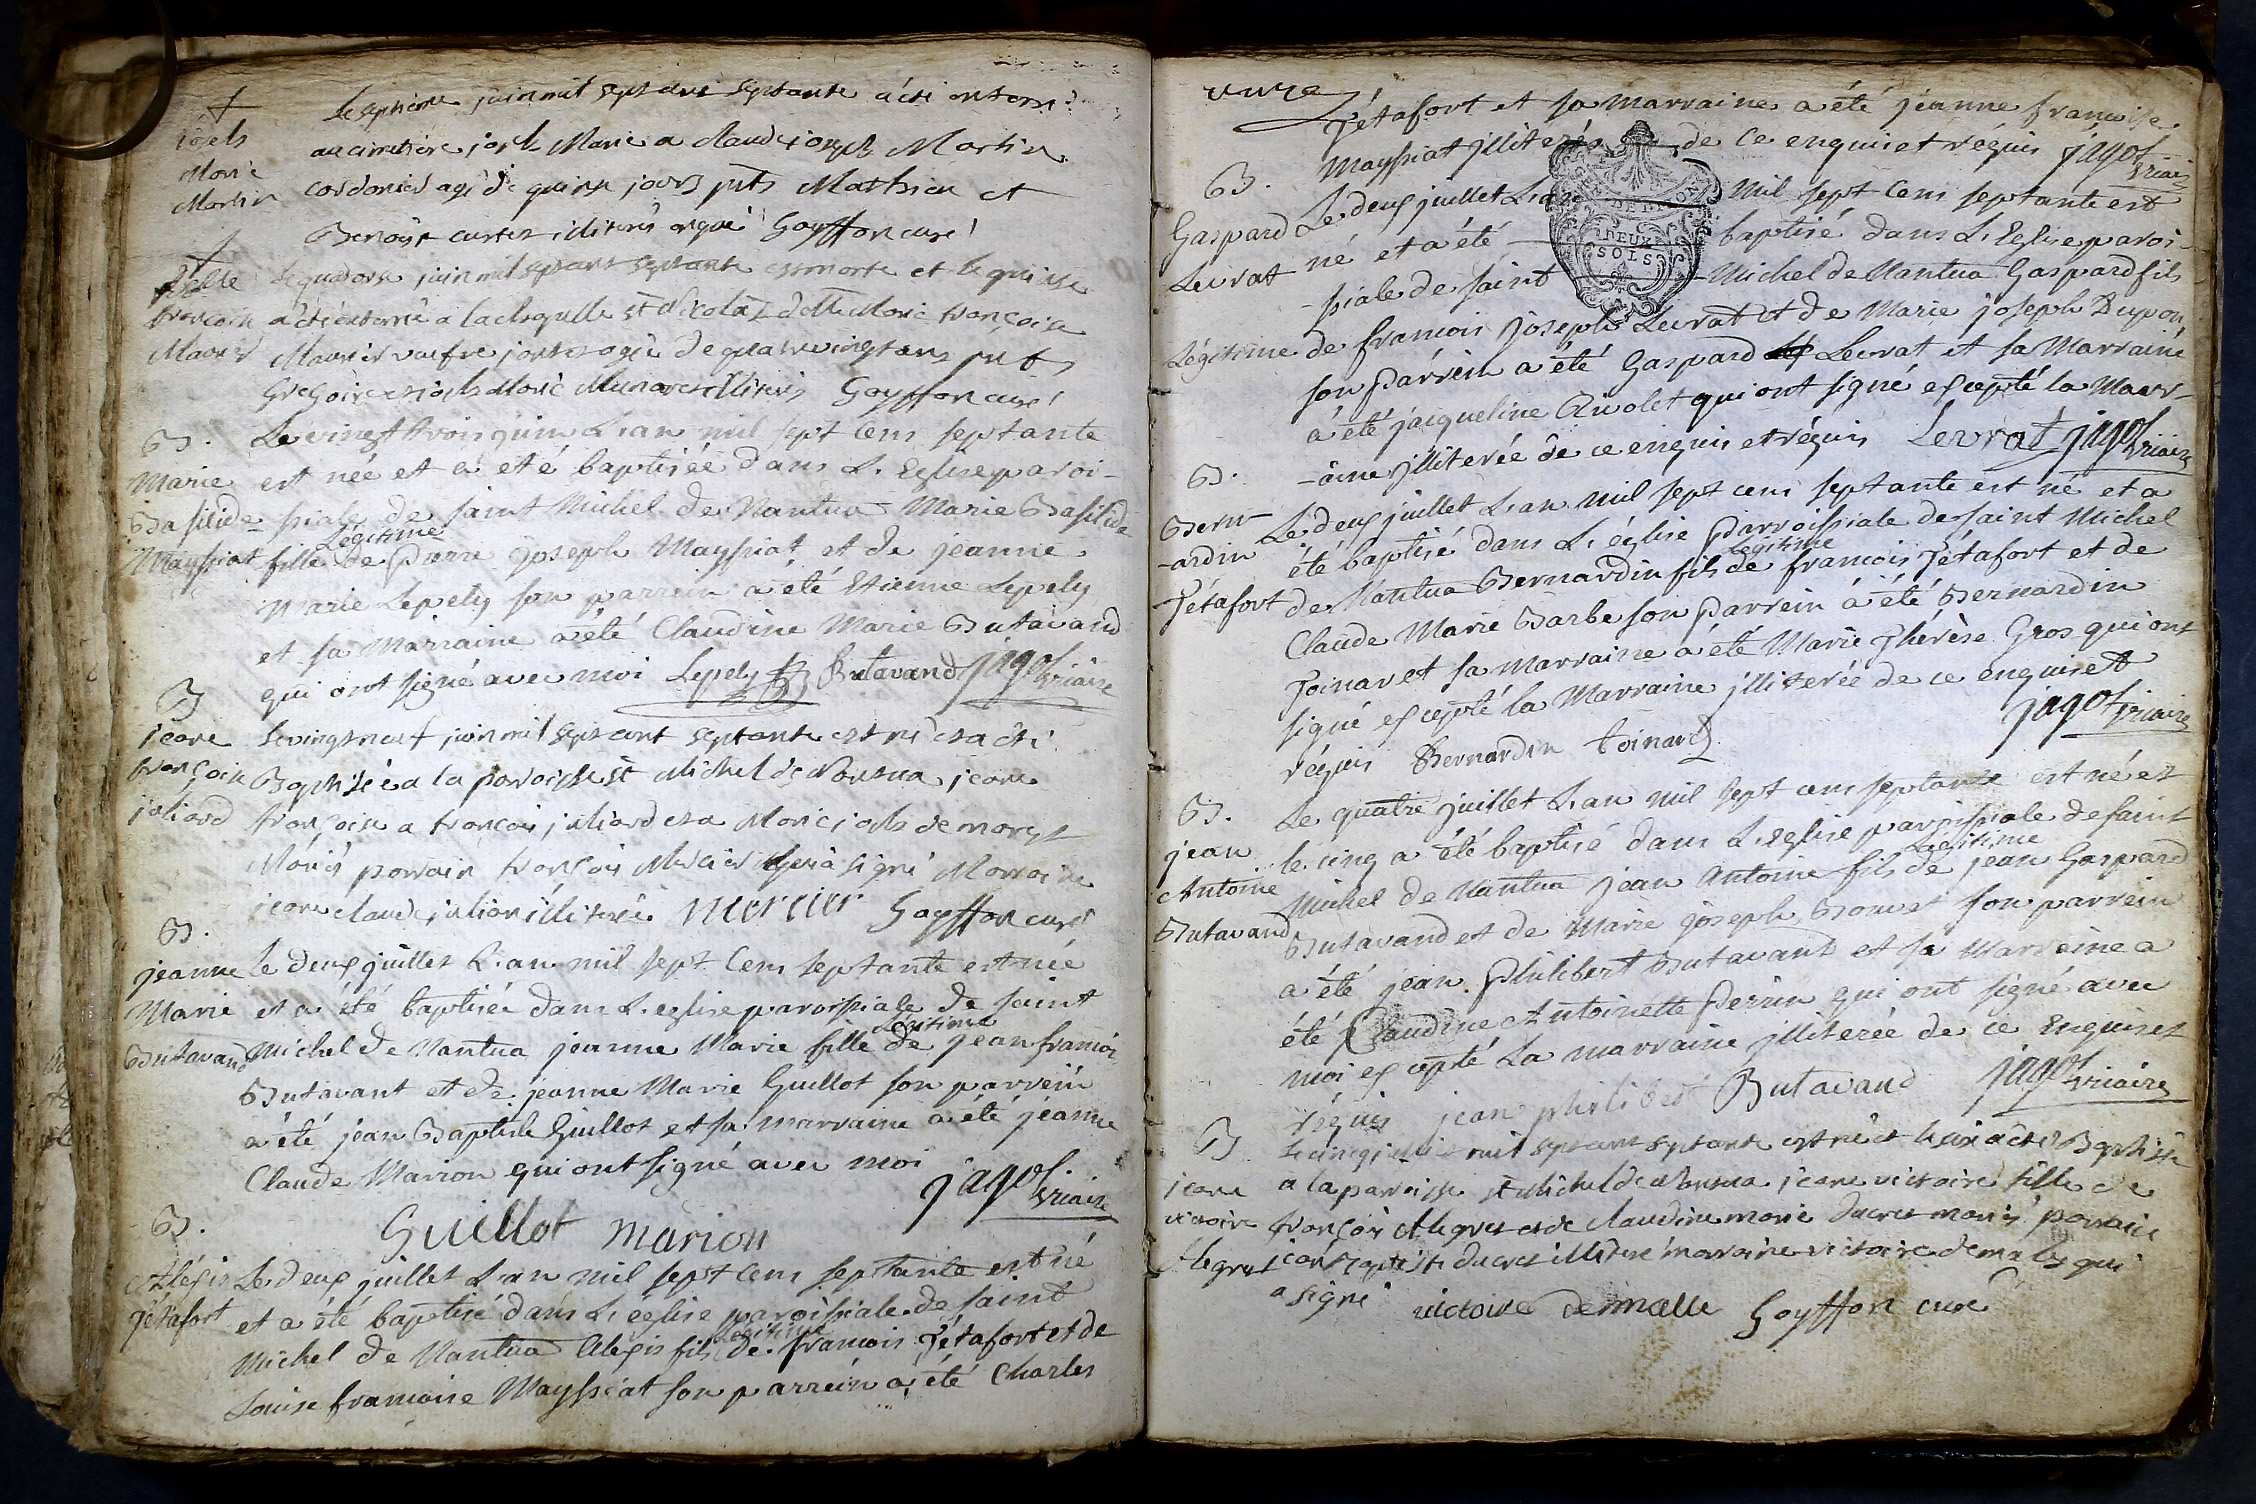 ✝
joseh
Marie
Martin
Le septieme juin mil sept cent septante a été enterré
au cimetiere joseh Marie a claude joseph Martin
cordonier agé de quinse jours pnts Mathieu et
Benoist curtet iliterés enquis Goyffon curé
✝
francoise
Mavier
Le quatorse juin mil sept cent septante est morte et le quinse
a été enterré a la chapelle st Nicolas Marie françoise
agée de quatre vingt ans pnts
Goyffon curé
B.
Marie
Basilide
Mayssiat
Le vingt trois juin L'an mil sept cens septante
est née et a été baptisée dans L'Eglise paroi-
ssiale de saint Michel de Nantua Marie Basilide
fille Légitime de Pierre joseph Mayssiat et de jeanne
Marie Lepely son parrein a été Etienne Lepely
et sa Marraine a été Claudine Marie Butavand
qui ont signé avec moi Lepely Butavand jagot vicaire
B
jeane
françoise
juliard
Le vingt neuf juin mil sept cent septante est né et a été
Baptisée a la paroisse st Michel de Nantua jeane
françoise a françois juliard et a Marie joseh de moryt
Mariés parrain françois Mercier qui a signé Marraine
jeane claude julian illiterée mercier Goyffon curé
B.
jeanne
Marie
Butavand
Le deux juillet L'an mil sept cens septante est née
et a été baptisée dans L'eglise paroissiale de saint
Michel de Nantua jeanne Marie fille Légitime de jean francois
Butavant et de jeanne Marie Guillot son parrein
a été jean Baptiste Guillot et sa marraine a été jeanne
Claude Marion qui ont signé avec moi
jagot vicaire
Guillot marion
B.
Aléxis
Jétafort
Le deux juillet L'an mil sept cens septante est né
et a été baptisé dans L'eglise paroissiale de saint
Michel de Nantua Alexis fils Légitime de francois Jétafort et de
Louise francoise Mayssiat son parrein a été Charles
Jétafort et sa marraine a été jeanne francoise
Mayssiat jlliterés de ce enquis et réquis jagot vicaire
B.
Gaspard
Levrat
Légitime
Le deux juillet L'an mil sept cens septante est
né et a été baptisé dans L'Eglise paroi-
-ssiale de saint -Michel de Nantua Gaspard fils
de francois joseph Levrat et de Marie joseph Dupon
son parrein a été Gaspard Levrat et sa Marraine
a été jacqueline Rivolet qui ont signé excepté la Marr-
-aine jlliterée de ce enquis et réquis Levrat jagot vicaire
B.
Bern-
-ardin
Jétafort
Le deux juillet L'an mil sept cens septante est né et a
été baptisé dans L'église Parroissiale de saint Michel
de Nantua Bernardin fils Légitime de francois Jétafort et de
Claude Marie Barbe son Parrein a été Bernardin
Toinar et sa marraine a été Marie Thérèse Gros qui ont
signé excepté la Marraine jlliterée de ce enquis et
réquis Bernardin toinard jagot vicaire
B.
jean
Antoine
Butavand
Le quatre juillet L'an mil sept cens septante est né et
le cinq a été baptisé dans L'eglise paroissiale de saint
Michel de Nantua jean Antoine fils Légitime de jean Gaspard
Butavand et de Marie joseph Bouvet son parrein
a été jean Philibert Butavant et sa Marreine a
été Claudine Antoinette Perrin qui ont signé avec
moi excepté La marraine jlliterée de ce Enquis et
réquis jean philibert Butavand jagot vicaire
B
jeane
victoire
Alegret
Le cinq juillet mil sept cent septante est né et le six a été Baptisée
a la paroisse st Michel de Nantua jeane victoire fille de
françois Alegret et de claudine marie ducret mariés parrain
jean baptiste ducret illiteré marraine victoire demale qui
a signé victoire demalle Goyffon curé
DEUX
SOLS